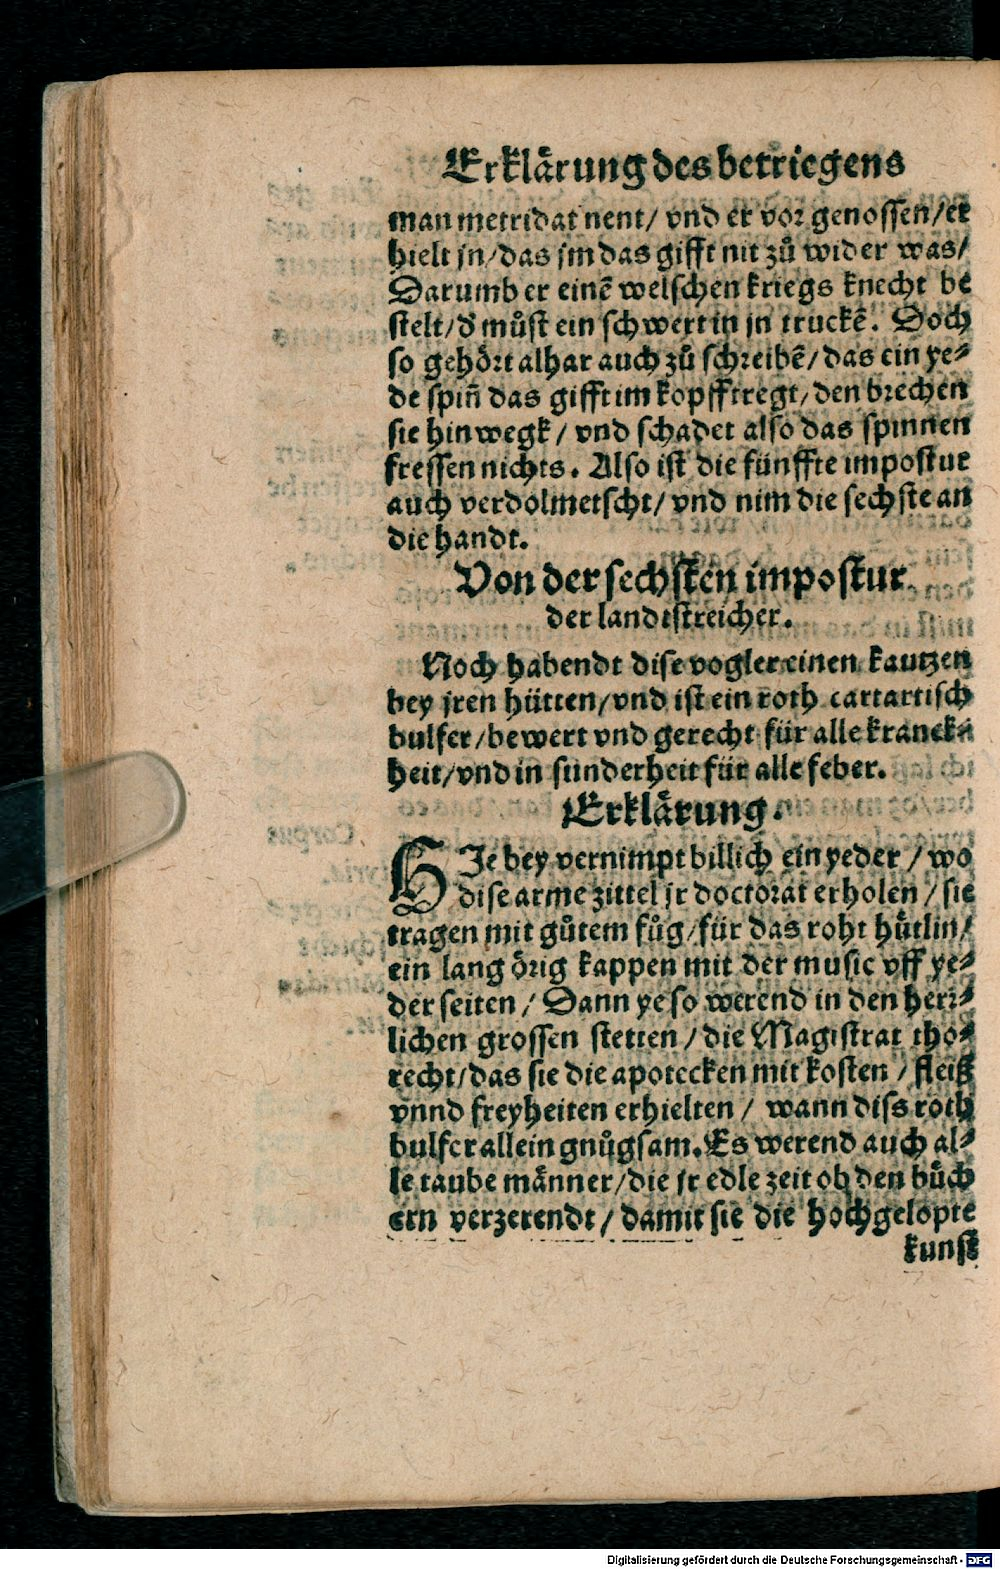 Erklärung des betriegens
man metridat nent/ vnd er vor genossen/er
hielt jn/das jm das gifft nit zů wider was/
Darumb er einẽ welschen kriegs knecht be
stelt/d' můst ein schwert in jn truckẽ. Doch
so gehört alhar auch zů schreibẽ/das ein ye⸗
de spiñ das gifft im kopff tregt/den brechen
sie hinwegk/ vnd schadet also das spinnen
fressen nichts. Also ist die fünffte impostur
auch verdolmetscht/ vnd nim die sechste an
die handt.
Von der sechsten impostur
der landtstreicher.
Noch habendt dise vogler einen kautzen
bey jren hütten/vnd ist ein roth cartartisch
bulfer/bewert vnd gerecht für alle kranck⸗
heit/vnd in sunderheit für alle feber.
Erklärung.
HIe bey vernimpt billich ein yeder/wo
dise arme züttel jr doctorat erholen/sie
tragen mit gůtem fůg/für das roht hůtlin/
ein lang örig kappen mit der music vff ye⸗
der seiten/ Dann ye so werend in den herr⸗
lichen grossen stetten/die Magistrat tho⸗
recht/das sie die apotecken mit kosten/ fleiß
vnnd freyheiten erhielten/ wann diss roth
bulfer allein gnůgsam. Es werend auch al⸗
le taube männer/die jr edle zeit ob den bůch
ern verzerendt/damit sie die hochgelopte
kunst
Digitalisierung gefördert durch die Deutsche Forschungsgemeinschaft - DFG